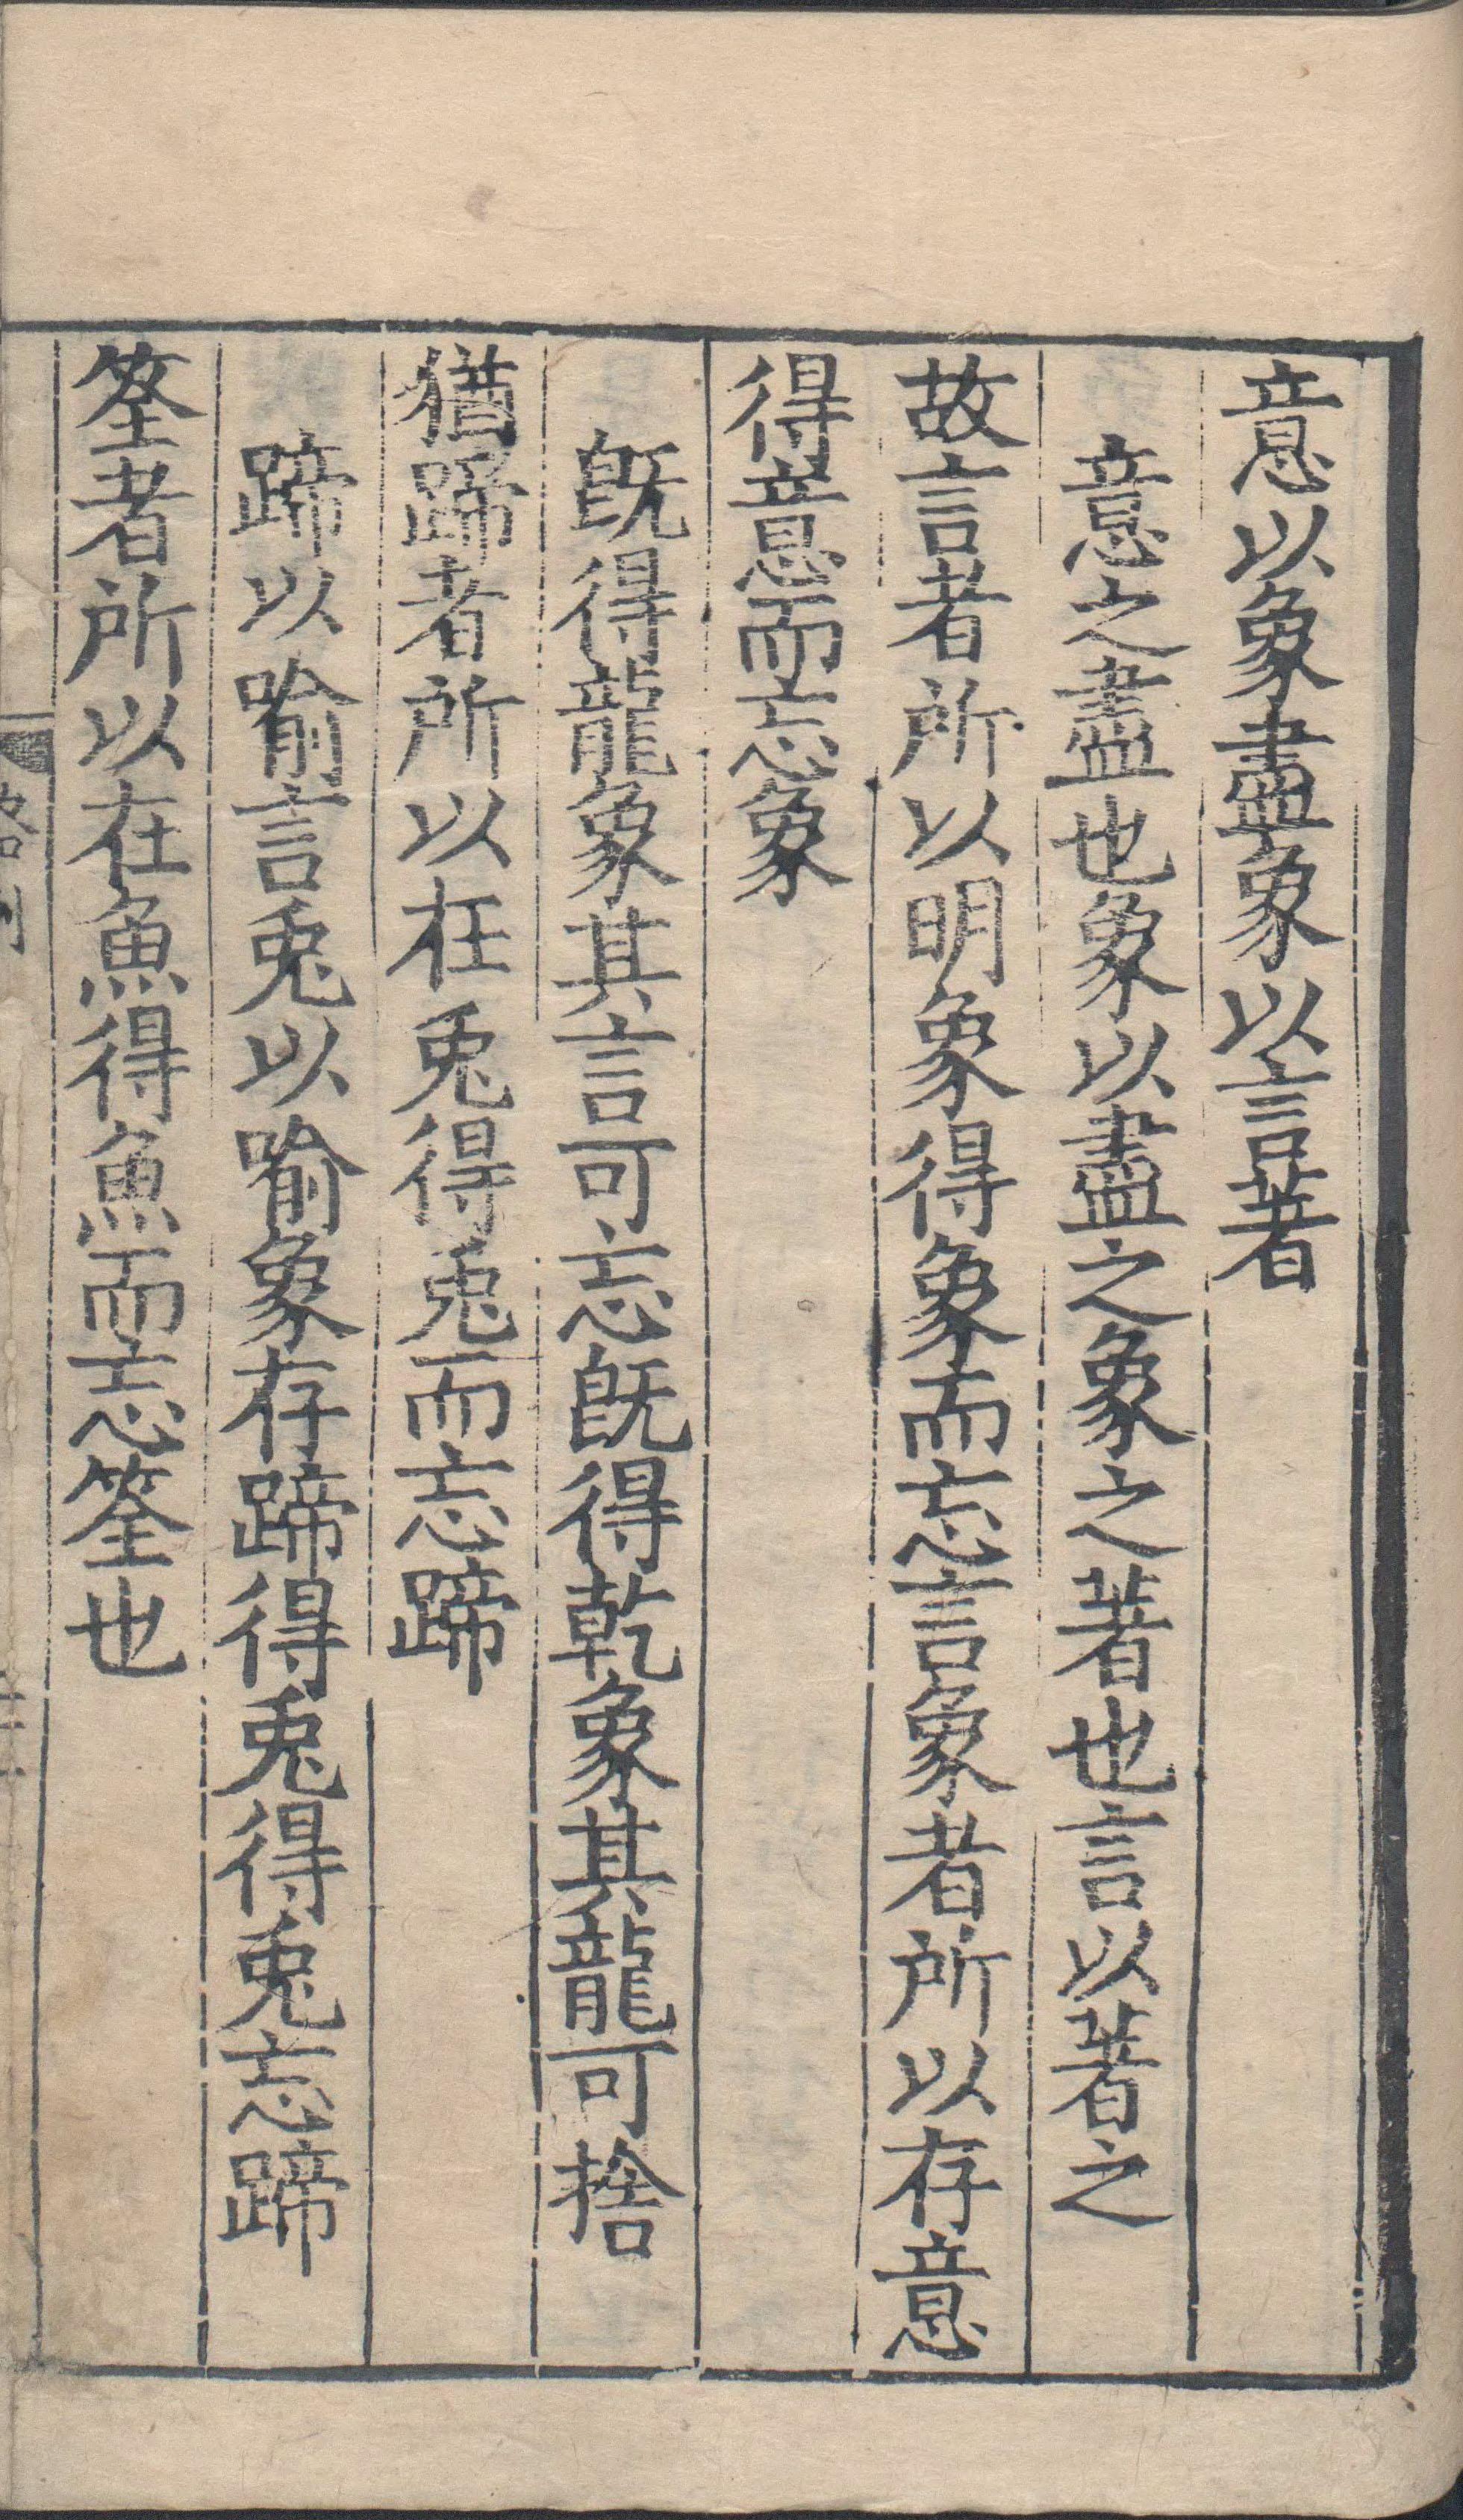 意以象盡象以言著
意之盡也象以盡之象之著也言以著之
故言者所以明象得象而忘言象者所以存意
得意而忘象
旣得龍象其言可忘旣得乾象其龍可捨
猶蹄者所以在兎得兎而忘蹄
蹄以喻言兎以喻象存蹄得兎得兎忘蹄
筌者所以在魚得魚而忘筌也